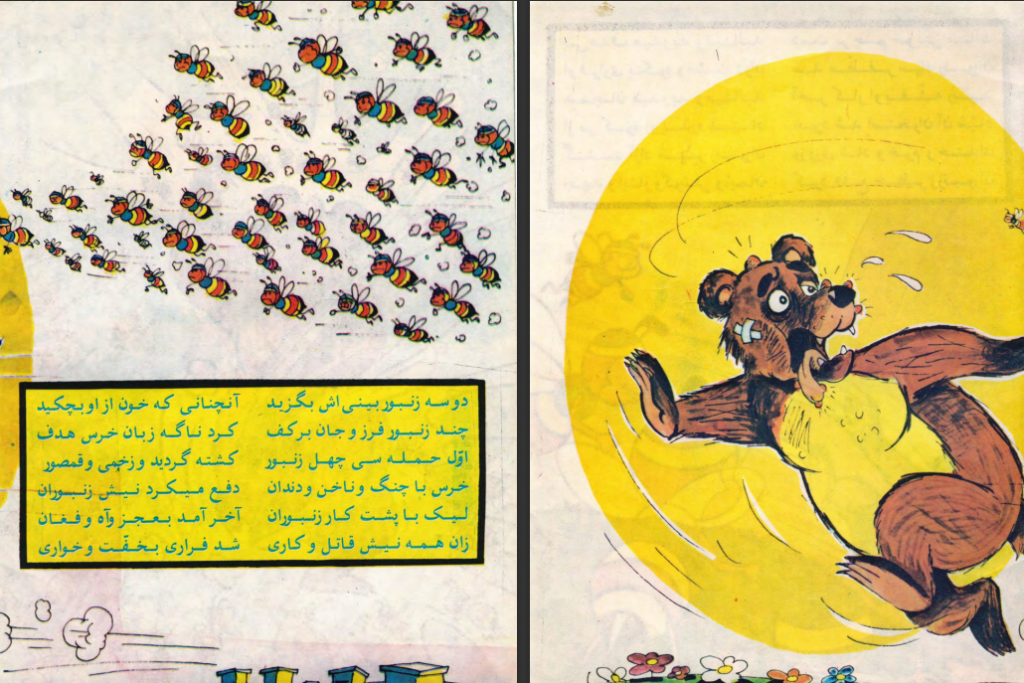 دو سه زنبور بینی اش بگزید آنچنانی که خون از او بچکید
چند زنبور فرز و جان بر کف کرد ناگه زبان خرس هدف
اوّل حمله سی چهل زنبور کشته گردید و زخمی و قمصور
خرس با چنگ و ناخن و دندان دفع میکرد نیش زنبوران
لیک با پشت کار زنبوران آخر آمد بعجز وآه و فغان
زان همه نیش قاتل و کاری شد فراری بخفّت و خواری